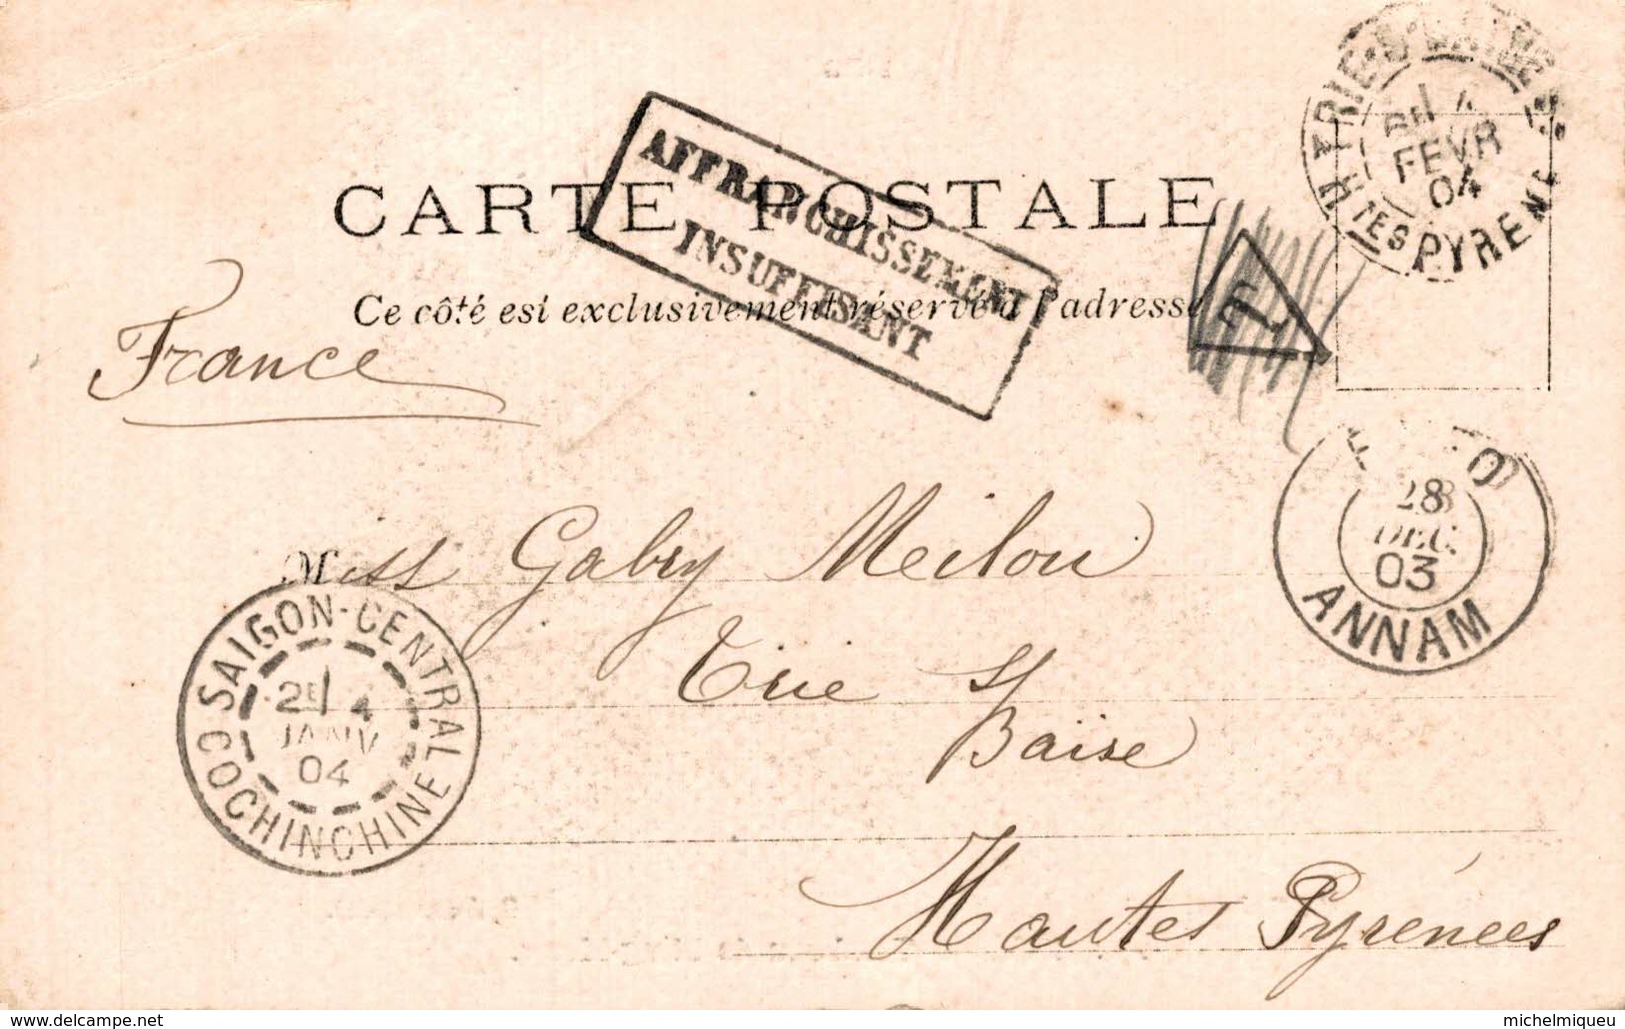 CARTE POSTALE
Ce côté est exclusivement réservé à l'adresse
AFFRANCHISSEMENT
INSUFFISANT
T
TRIE-S-BAISE
4
FEVR
04
HTES PYRENÉES
France
28
DEC
03
ANNAM
Miss Gaby Meilou
Trie s/
Baïse
Hautes Pyrénées
SAIGON-CENTRAL
2E 4
JANV
04
COCHINCHINE
www.delcampe.net
michelmiqueu